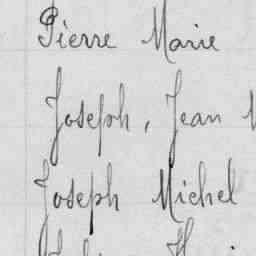 Pierre Marie
Joseph, Jean
Joseph Michel